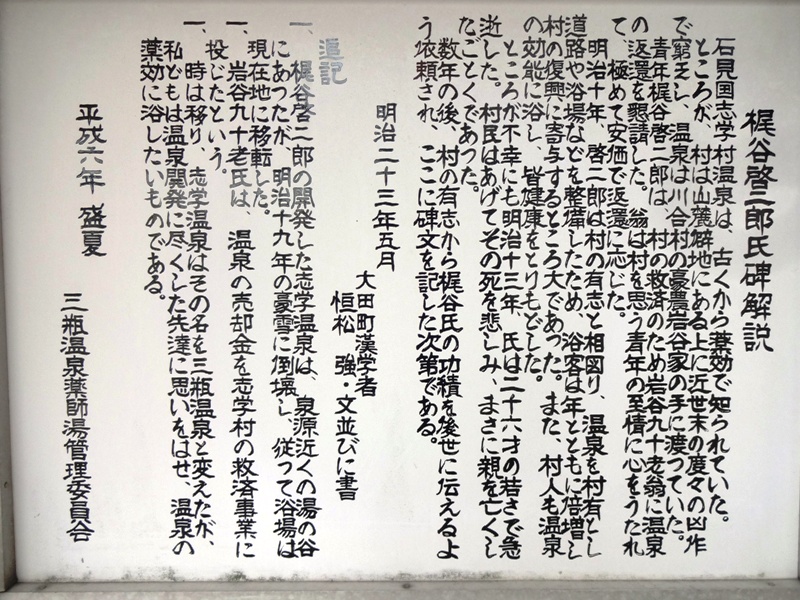 梶谷啓二郎氏碑解説
石見国志学村温泉は、古くから薬効で知られていた。
ところが、村は山麓僻地にある上に近世末の度々の凶作
で窮乏し、温泉は川合村の豪農岩谷家の手に渡っていた。
青年梶谷啓二郎は、村の救済のため岩谷九十老翁に温泉
の返還を懇請した。翁は村を思う青年の至情に心をうたれ
て、極めて安価で返還に応じた。
明治十年、啓二郎は村の有志と相図り、温泉を村有とし
道路や浴場などを整備したため、浴客は年とともに倍増し
村の復興に寄与するところ大であった。また、村人も温泉
の効能に浴し、皆健康をとりもどした。
ところが不幸にも明治十三年、氏は二十六才の若さで急
逝した。村民はあげてその死を悲しみ、まさに親を亡くし
たごとくであった。
数年の後、村の有志から梶谷氏の功績を後世に伝えるよ
う依頼され、ここに碑文を記した次第である。
明治二十三年五月
大田町漢学者
恒松 強・文並びに書
追記
一、梶谷啓二郎の開発した志学温泉は、泉源近くの湯の谷
にあつたが、明治十九年の豪雪に倒壊し、従つて浴場は
現在地に移転した。
一、岩谷九十老氏は、温泉の売却金を志学村の救済事業に
投じたという。
一、時は移り、志学温泉はその名を三瓶温泉と変えたが、
私どもは温泉開発に尽くした先達に思いをはせ、温泉の
薬効に浴したいものである。
平成六年 盛夏
三瓶温泉薬師湯管理委員会